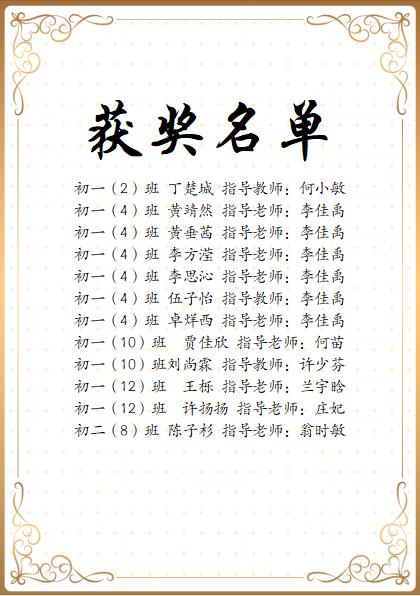 获奖名单
初一（2）班 丁楚城 指导教师：何小敏
初一（4）班 黄靖然 指导老师：李佳禹
初一（4）班 黄垂茜 指导老师：李佳禹
初一（4）班 李方滢 指导老师：李佳禹
初一（4）班 李思沁 指导老师：李佳禹
初一（4）班 伍子怡 指导教师：李佳禹
初一（4）班 卓烊西 指导老师：李佳禹
初一（10）班 贾佳欣 指导老师：何苗
初一（10）班刘尚霖 指导教师：许少芬
初一（12）班 王栎 指导老师：兰宇晗
初一（12）班 许扬扬 指导老师：庄妃
初二（8）班 陈子杉 指导老师：翁时敏